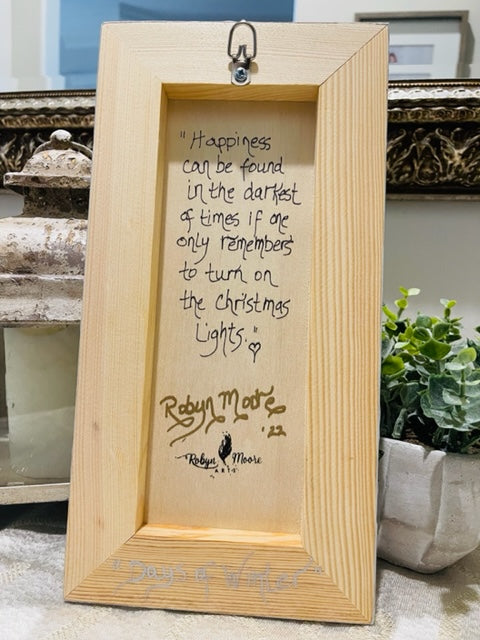 "Happiness
can be found
in the darkest
of times if one
only remembers
to turn on
the Christmas
Lights."
Robyn Moore
'22
Robyn Moore
ARTS
"Days of Winter"